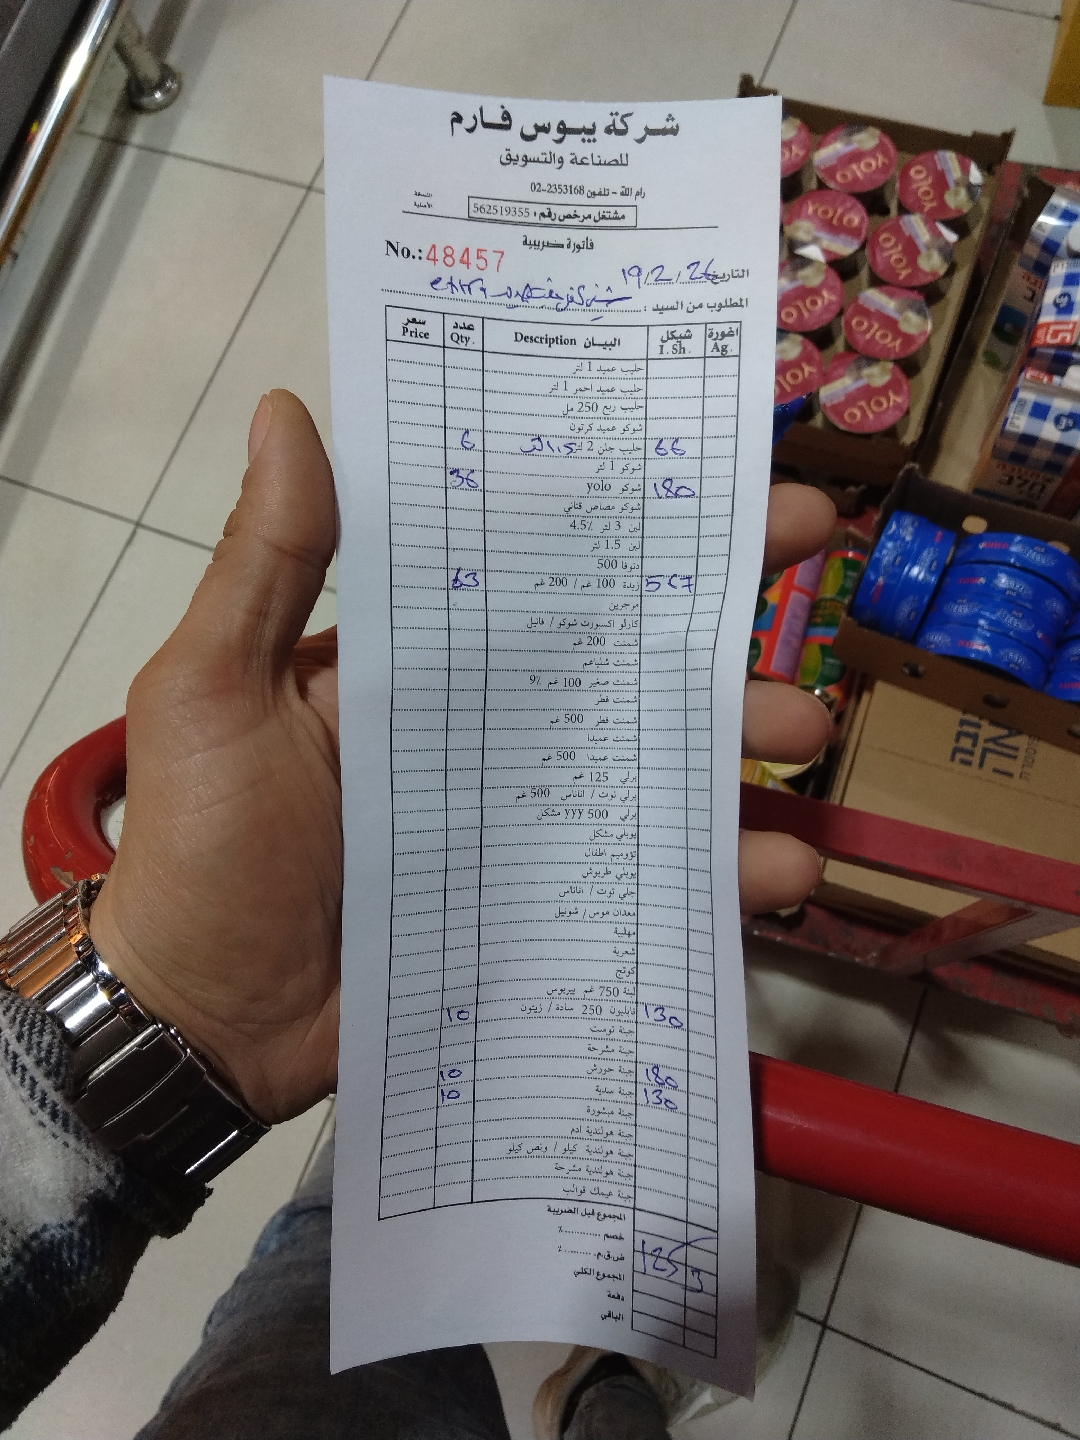 شركة يبوس فارم
للصناعة والتسويق
رام الله - تلفون 2353168-02
النسخة الأصلية
مشتغل مرخص رقم: 562519355
فاتورة ضريبية
No.: 48457
التاريخ 19/2/26
المطلوب من السيد: extra
سعر Price عدد Qty. البيان Description شيكل I.Sh. اغورة Ag.
حليب عميد 1 لتر
حليب عميد احمر 1 لتر
حليب ربع 250 مل
شوكو عميد كرتون
6 حليب جتن 2 لتر 1.5 لتر 66
شوكو 1 لتر
36 شوكو yolo 180
شوكو مصاص قناني
لبن 3 لتر 4.5%
لبن 1.5 لتر
دنوفا 500
63 زبدة 100 غم / 200 غم 567
مرجرين
كارلو اكسبورت شوكو / فانيل
شمنت 200 غم
شمنت شلباعم
شمنت صغير 100 غم 9%
شمنت فطر
شمنت فطر 500 غم
شمنت عميدا
شمنت عميدا 500 غم
برلي 125 غم
برلي توت / اناناس 500 غم
برلي 500 yyy مشكل
يوبلي مشكل
تؤوميم اطفال
يوبلي طربوش
جلي توت / اناناس
معدان موس / شونيل
مهلبية
شعرية
كوتج
لبنة 750 غم يبوس
10 نابليون 250 سادة / زيتون 130
جبنة توست
جبنة مشرحة
10 جبنة حورش 180
10 جبنة سدية 130
جبنة مبشورة
جبنة هولندية ادم
جبنة هولندية كيلو / ونص كيلو
جبنة هولندية مشرحة
جبنة عيمك قوالب
المجموع قبل الضريبة
خصم ...........%
ض.ق.م. ..........% 1253
المجموع الكلي
دفعة
الباقي
YOLO
YOLO
YOLO
YOLO
YOLO
YOLO
YOLO
YOLO